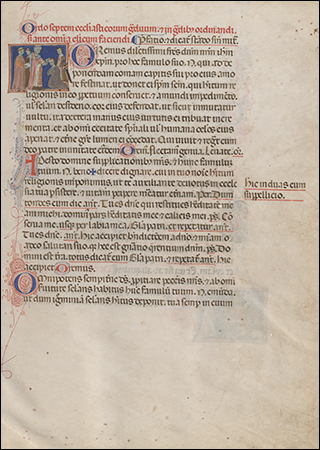 Ordo septem ecclasticorum &in gdibꝰ ordinandi
fi ante omīa clericum faciendi
Oremus dilectissimi frēs dnm nrm ihm
xpm. pro hoc famulo suo. N. qui ad de
ponendam comam capitis sui pro eius amo
re festinat. ut donet ei spm scm. qui hitum re
ligionis in eo ppetuum conseruet. & a mundi impedimēto
ul sclari desiderio. cor eius defendat. ut sicut inmutatur
uultu. ita dextera manus eius uirtutis ei tribuat incre
menta. & ab omni cecitate spirituali ul humana oculos eius
aperiat. & etne grē lumen ei concedat. Qui uiuit & regnat cum
deo patre in unitate eiusdem Oremus flectamus genua. Leuate. or.
Adesto domine supplicationibus nris. & hunc famulum
tuum. N. bene ✠ dicere dignare. cui in tuo noīe hitum
religionis imponimus. ut te auxiliante deuotus in eccle
sia tua psistere. & uitam percipere mereatur eternam. per. Dum
tondes eum dic ant. Tu es dne qui restitues hereditatē
meam michi. dominus pars hereditatis mee & calicis mei. ps. Cō
serua me. usqꝫ per labia mea. Gla patri. et repetatur ant.
Tu es dne. ant. hic accipiet bndictionem a dno. & miam a
deo salutari suo. qꝛ hec est gnatio querentium dnm. ps. Do
mini est tra. totus dicat cum Gla patri. & repetat ant. hic
accipiet Oremus.
Omnipotens sempitne ds. ppitiare peccatis nris. & ab omi
seruitute sclaris habitus hūc famulū tuum. N. emūda.
ut dum ignominiā sclaris hitus deponit. tua semp in euum
hic induas eum
supellicio.